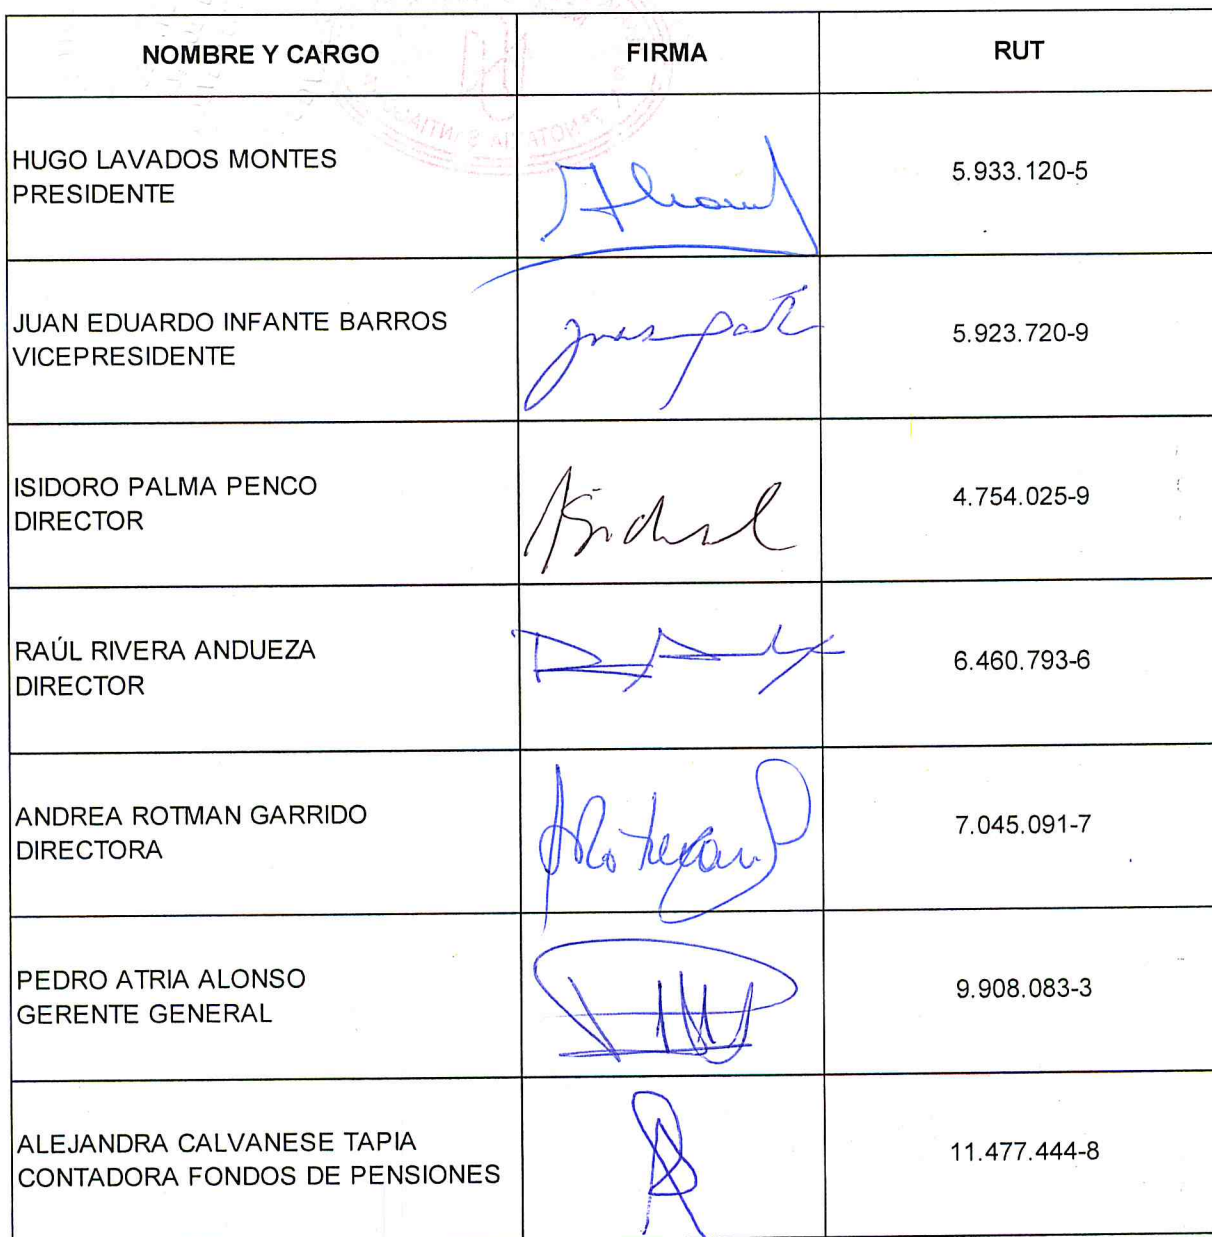 NOMBRE Y CARGO FIRMA RUT
HUGO LAVADOS MONTES
PRESIDENTE
5.933.120-5
JUAN EDUARDO INFANTE BARROS
VICEPRESIDENTE
5.923.720-9
ISIDORO PALMA PENCO
DIRECTOR
4.754.025-9
RAÚL RIVERA ANDUEZA
DIRECTOR
6.460.793-6
ANDREA ROTMAN GARRIDO
DIRECTORA
7.045.091-7
PEDRO ATRIA ALONSO
GERENTE GENERAL
9.908.083-3
ALEJANDRA CALVANESE TAPIA
CONTADORA FONDOS DE PENSIONES
11.477.444-8